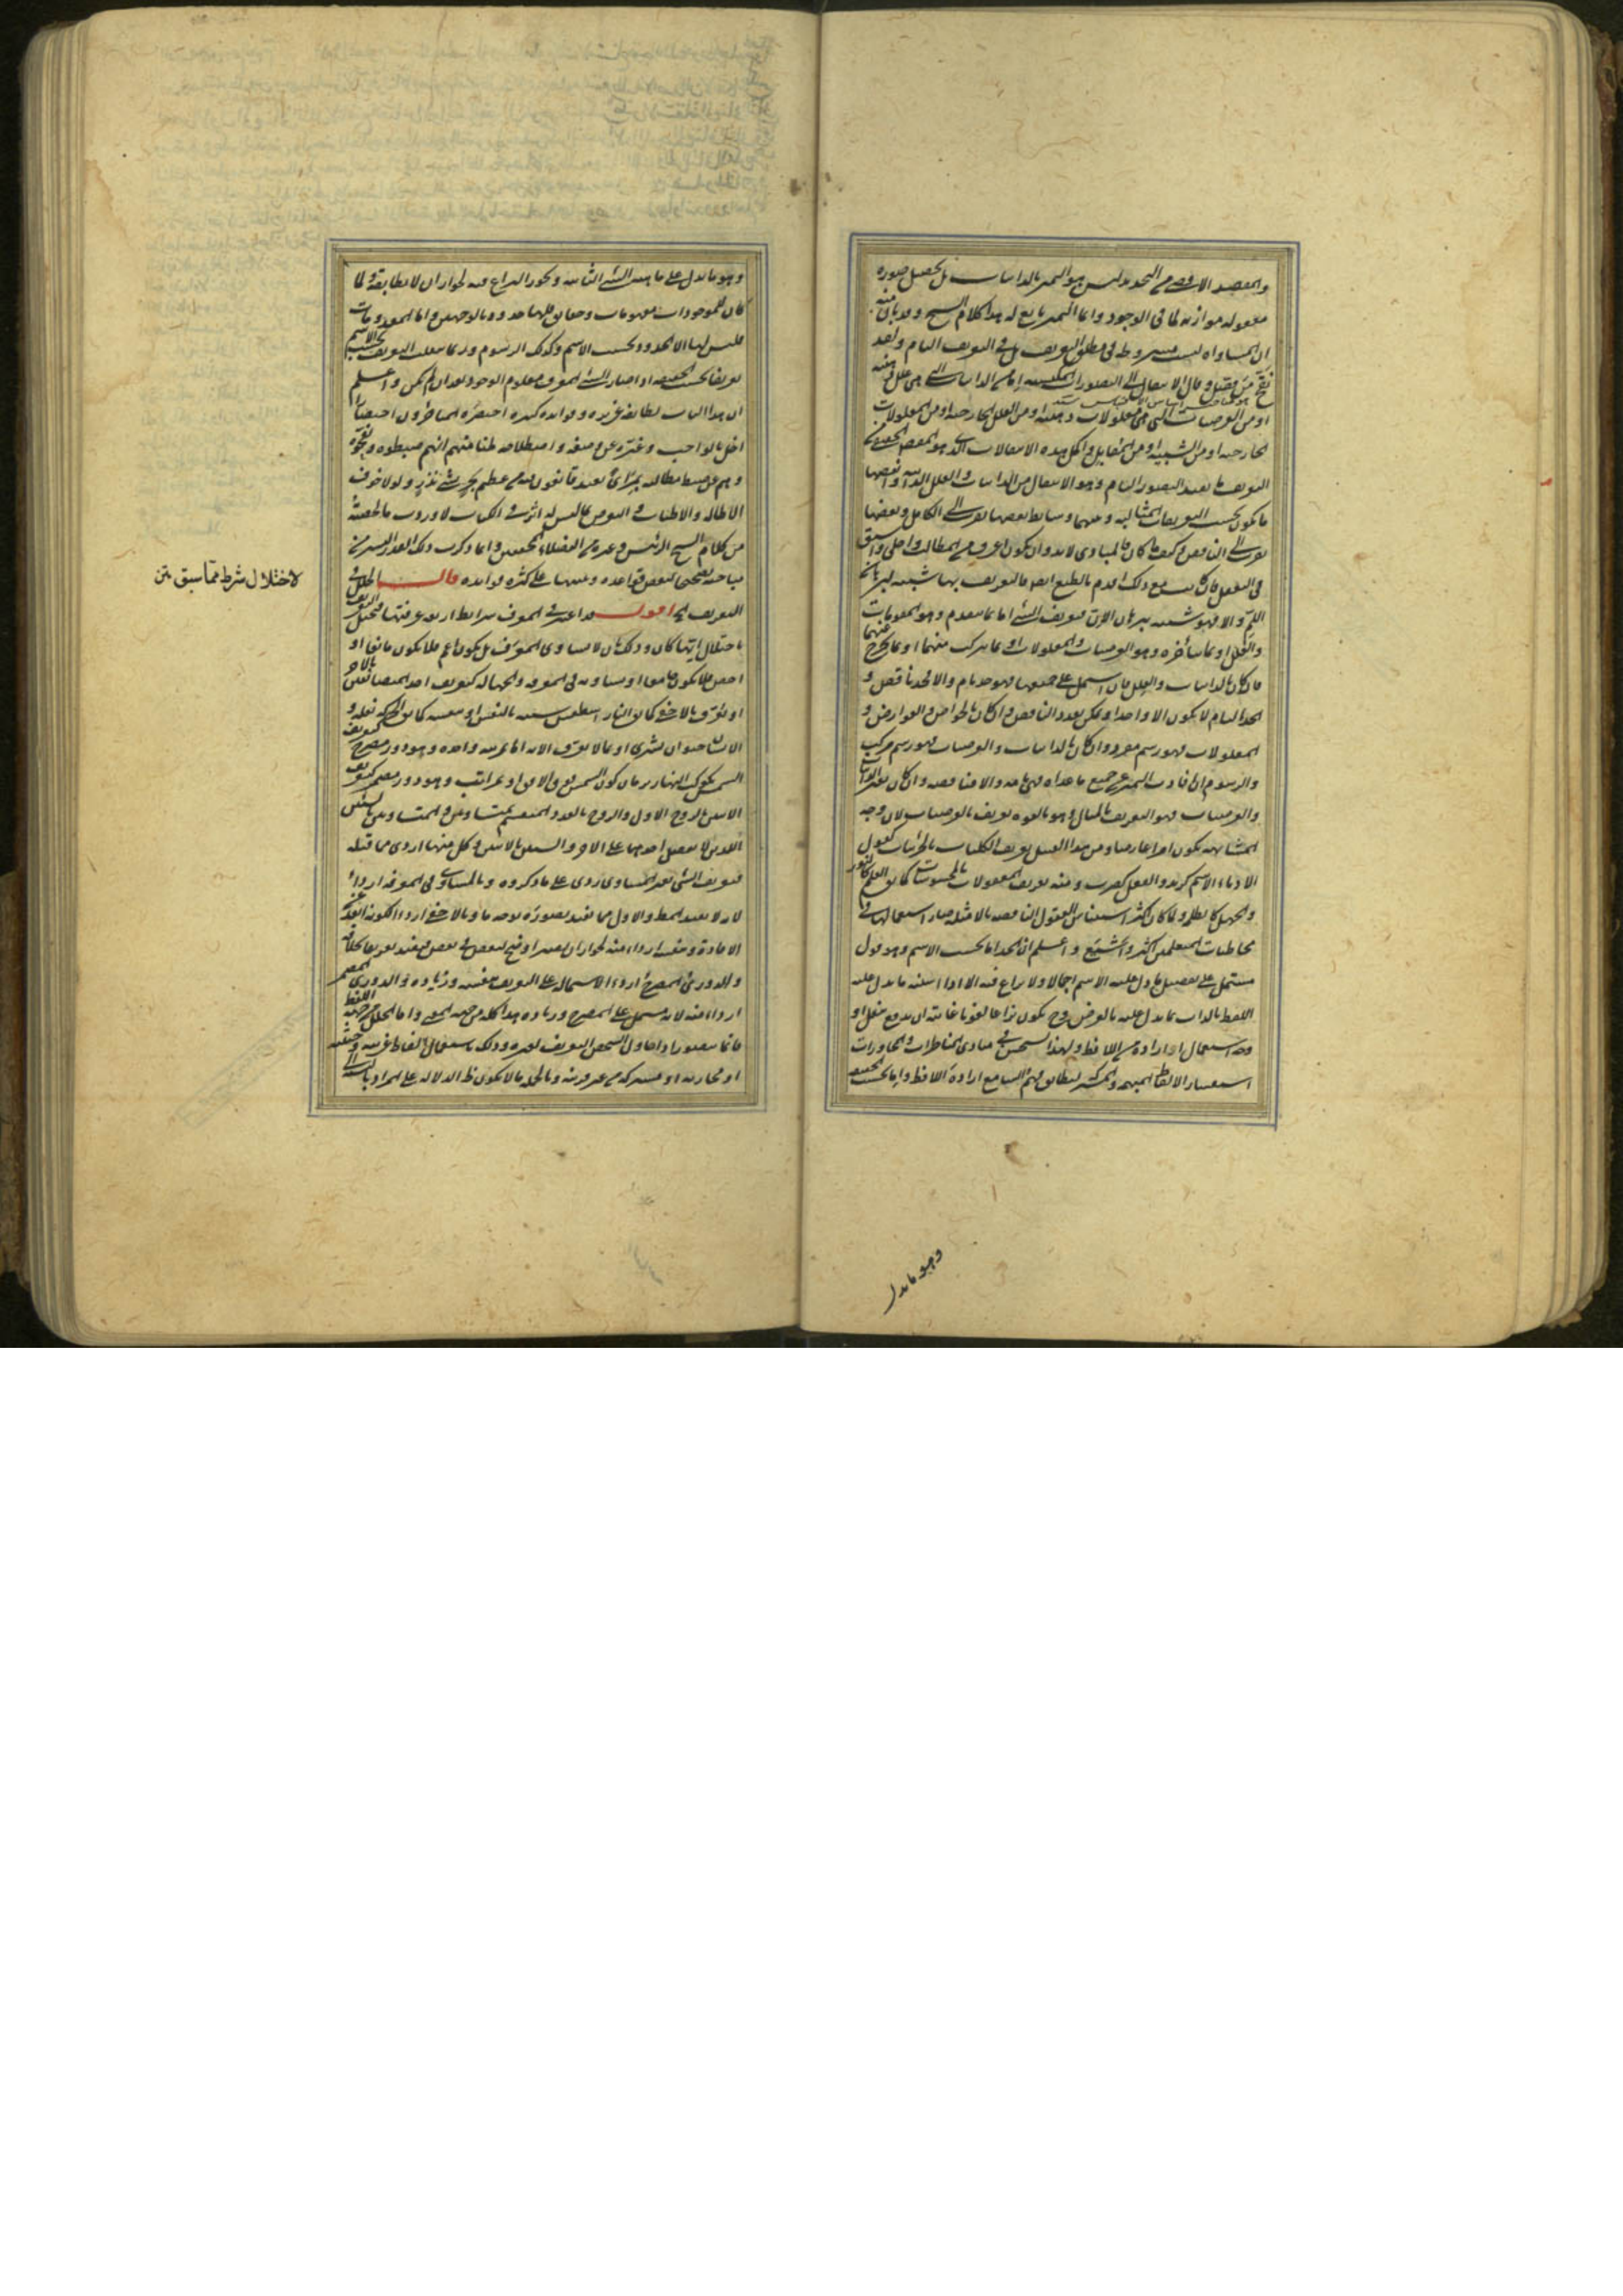 والمقصد الاقصى من التحديد ليس هو التميز بالذاتيات بل تحصيل صورة
معقولة موازية لما فى الوجود وانما التميز تابع له هذا كلام الشيخ وقد بان منه
ان المساواة ليست مشروطة فى مطلق التعريف بل فى التعريف التام ولقد
نقح من وقال الانتقال الى التصورات المكتسبة اما من الذاتيات التى هى علل
او من العرضيات التى هى معلولات داخلية او من العلل الخارجية او من المعلولات
الخارجية او من الشبيه او من المقابل واكمل هذه الانتقالات الذى هو المقصد الحقيقى
التعريف ما يفيد التصور التام وهو الانتقال من الذاتيات والعلل الذاتية وانقصها
ما يكون بحسب التعريفات المثالية وبينهما وسائط بعضها يقرب الى الكامل وبعضها
يقرب الى الناقص وكيف ما كان فالمبادى لابد وان يكون اعرف من المطالب واجلى واسبق
فى التعقل فان كانت مع ذلك اقدم بالطبع ايضا فالتعريف بها شبيه ببرهان
اللم والا فهو شبيه ببرهان الان فتعريف الشئ اما بما يتقدمه وهو المقومات
والعلل او بما يتأخره وهو العرضيات والمعلولات او بما يتركب منهما او بما يخرج عنهما
فان كان بالذاتيات والعلل فان اشتمل على جميعها فهو حد تام والا فحد ناقص و
الحد التام لا يكون الا واحدا ويمكن تعدد الناقص وان كان بالخواص والعوارض و
المعلولات فهو رسم مفرد وان كان بالذاتيات والعرضيات فهو رسم مركب
والرسوم ان افادت التميز عن جميع ما عداه فهى تامة والا فناقصة وان كان بغير الذاتيات
والعرضيات فهو التعريف بالمثال وهو بالقوة تعريف بالعرضيات لان وجه
المشابهة يكون امرا عارضا ومن هذا القبيل تعريف الكليات بالجزئيات كقول
الادباء الاسم كزيد والفعل كضرب ومنه تعريف المعقولات بالمحسوسات كما يق العلم كالنور
والجهل كالظلمة ولما كان اكثر استيناس العقول الناقصة بالامثلة صار استعمالها فى
مخاطبات المتعلمين اكثر واشيع واعلم ان الحد اما بحسب الاسم وهو قول
مشتمل على تفصيل ما دل عليه الاسم اجمالا ولا نزاع فيه الا اذا اسند ما يدل عليه
اللفظ بالذات بما يدل عليه بالعرض وح يكون نزاعا لغويا غايته ان يدفع بنقل او
وجه استعمال او ارادة من اللافظ ولهذا يستحسن فى مبادى المناظرات والمحاورات
استفسار الالفاظ المبهمة والمشتركة ليطابق فهم السامع ارادة اللافظ واما بحسب الحقيقة
وهو ما يدل
وهو ما يدل على ماهية الشئ الثابتة ويجوز النزاع فيه لجواز ان لا يطابقه ولما
كان للموجودات مفهومات وحقايق فلها حدود بالوجهين واما المعدومات
فليس لها الا الحدود بحسب الاسم وكذلك الرسوم وربما ينقلب التعريف بحسب الاسم
تعريفا بحسب الحقيقة اذا صار الشئ المعرف معلوم الوجود بعد ان لم يكن واعلم
ان هذا الباب لطايفه عزيزة وفوايده كثيرة اختصره المتأخرون اختصارا
اخل بالواجب وغيره عن وضعه واصطلاحه ظنا منهم انهم ضبطوه ونقحوه
وهم عن ضبط مطالبه بمرأى بعيد قانعون منه من عظيم بحر بشئ نذير ولولا خوف
الاطالة والاطناب فى الخوض بما ليس له اثر فى الكتاب لاوردت ما لخصته
من كلام الشيخ الرئيس وغيره من الفضلاء المحققين وانما ذكرت ذلك القدر اليسير من
مباحثه تصحيحا لبعض قواعده وتنبيها على كثرة فوايده قال الخلل فى
التعريف الخ اقول قد اعتبر فى المعرف شرايط اربعة عرفتها فيختل التعريف
باختلال ايتها كان وذلك بان لا يساوى المعرف بل يكون اعم فلا يكون مانعا او
اخص فلا يكون جامعا او يساويه فى المعرفة والجهالة كتعريف احد المتضايفين بالاخر
او يعرف بالاخفى كما يق النار اسطقس شبيه بالنفس او بنفسه كما يق الحركة نقلة و
الانسان حيوان بشرى او بما لا يعرف الا به اما بمرتبة واحدة وهو دور مصرح كتعريف
الشمس بكوكب النهار بزمان كون الشمس فوق الافق او بمراتب وهو دور مضمر كتعريف
الاثنين بالزوج الاول والزوج بالعدد المنقسم بمتساويين والمتساويين بالشيئين
اللذين لا يفضل احدهما على الاخر والشيئين بالاثنين وكل منها اردى مما قبله
فتعريف الشئ بغير المساوى ردى على ما ذكروه وبالمساوى فى المعرفة اردأ
لانه لا يفيد المط والاول مما يفيد تصوره بوجه ما وبالاخفى اردأ لكونه ابعد عن
الافادة وبنفسه اردأ منه لجواز ان يصير اوضح لبعض فى بعض فيفيد تعريفا بخلافه
والدورى المصرح اردأ لاشتماله على التعريف بنفسه وزيادة والدورى المضمر
اردأ منه لانه يشتمل على المصرح وزيادة هذا كله من جهة المعنى واما الخلل من جهة اللفظ
فانما يتصور اذا حاول الشخص التعريف لغيره وذلك باستعمال الفاظ غريبة وحشية
او مجازية او مشتركة من غير قرينة وبالجملة ما لا يكون ظ الدلالة على المراد بالنسبة الى
لاختلال شرط مما سبق متن